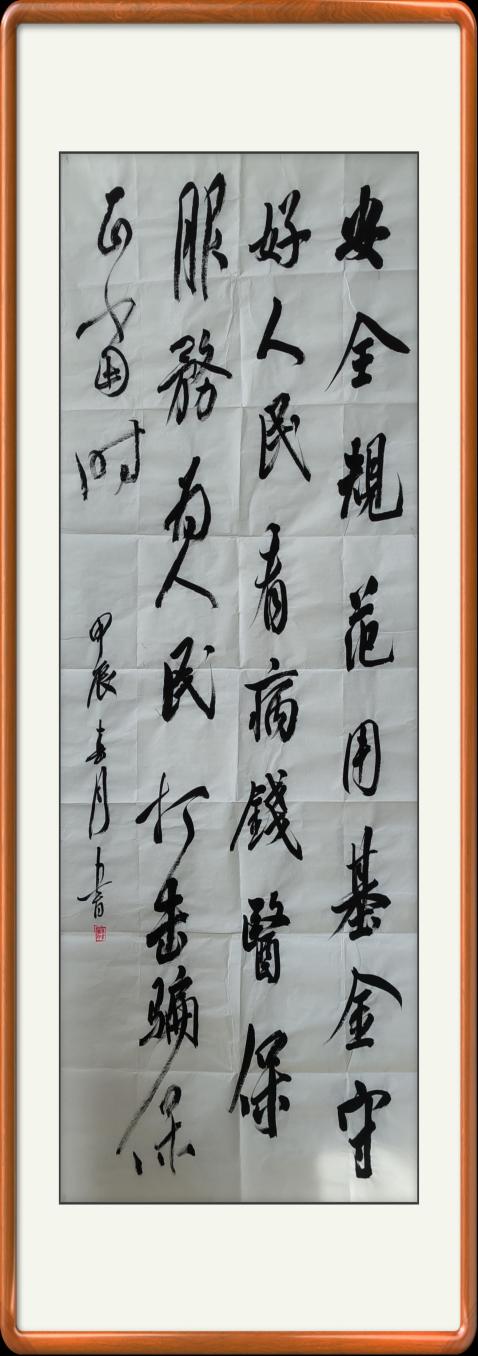 安全規范用基金守
好人民看病錢醫保
服務為人民打击騙保
正當时
甲辰春月書